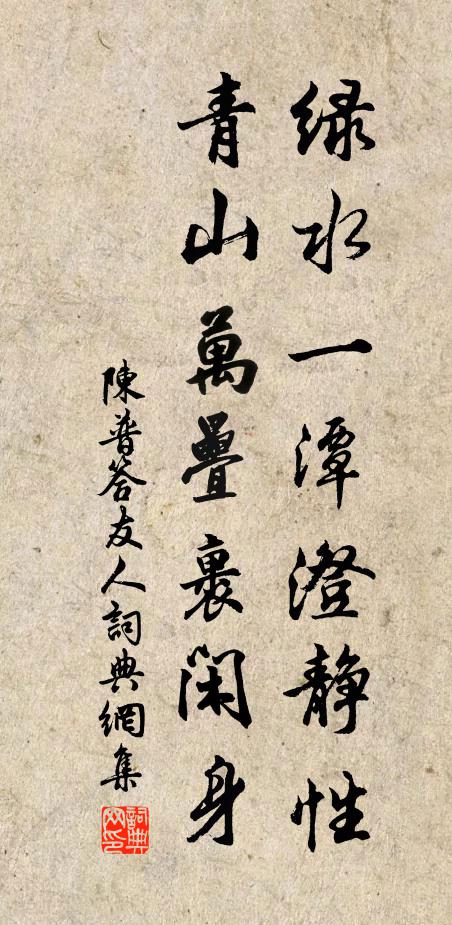 綠水一潭澄静性
青山萬疊裹閑身
陳普答友人詞典網集
詞典网印